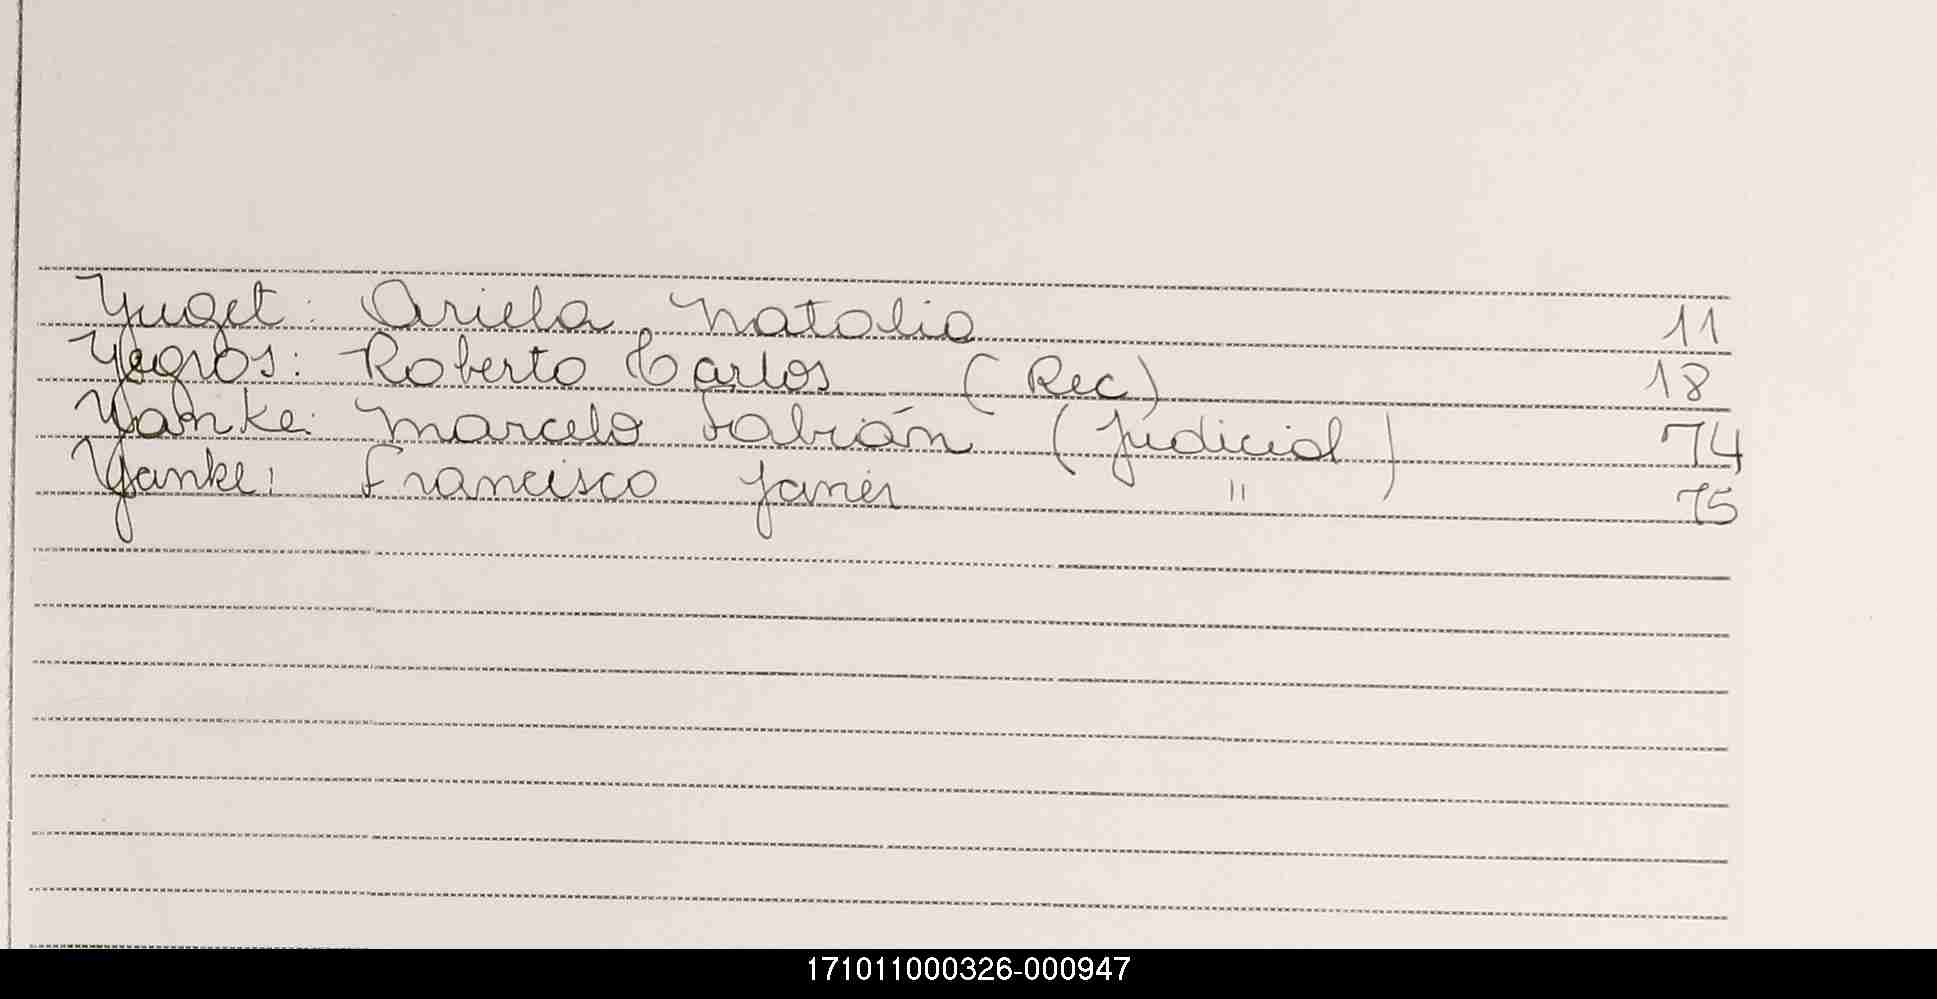 Yuget: Ariela Natalia 11
Yegros: Roberto Carlos (Rec) 18
Yanke: Marcelo Fabián (Judicial) 74
Yanke: Francisco Javier " 75
171011000326-000947